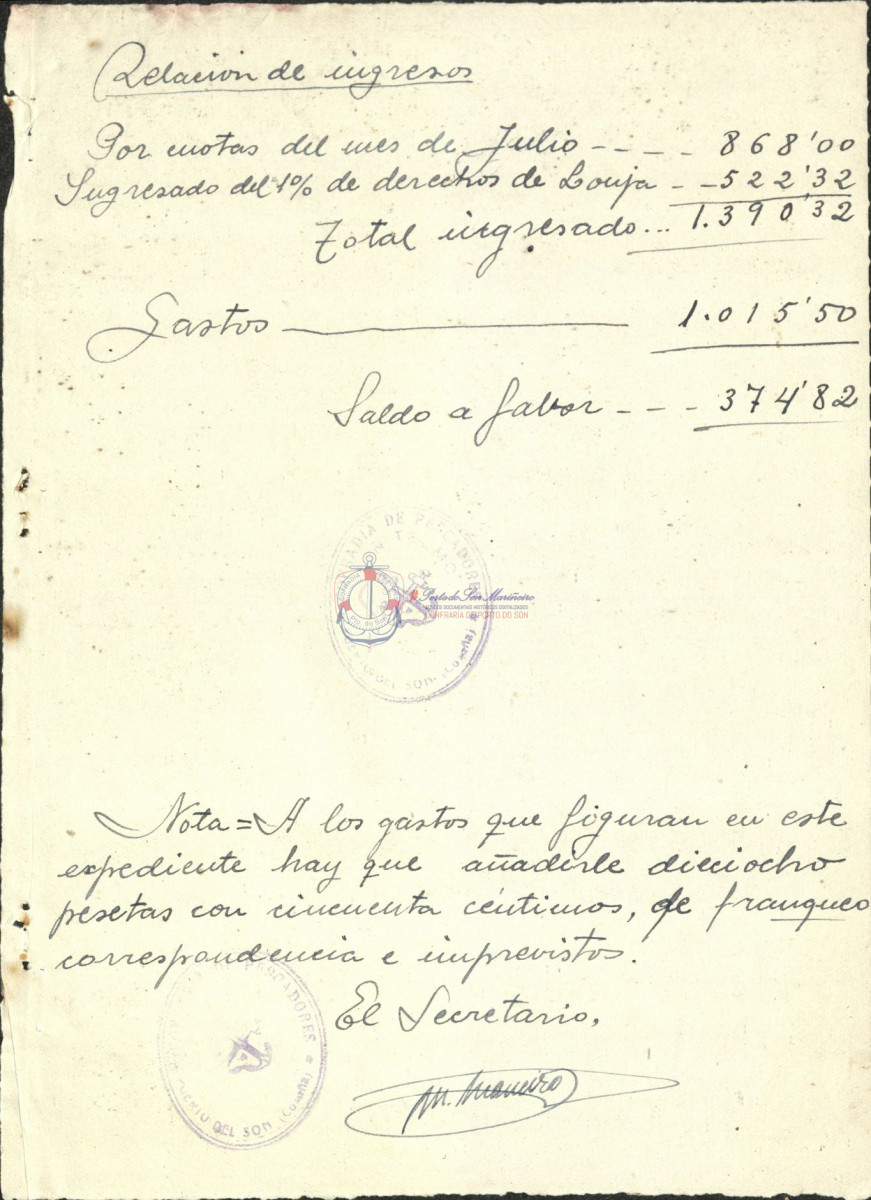 Relación de ingresos
Por cuotas del mes de Julio - - - - 868'00
Ingresado del 1% de derechos de Lonja - - 522'32
Total ingresado... 1.390'32
Gastos 1.015'50
Saldo a fabor - - - 374'82
RADIA DE PESCADORES
Porto do Son Mariñeiro
CONFRARÍA DE PORTO DO SON
DEL SON. (Coruña)
Nota = A los gastos que figuran en este
expediente hay que añadirle dieciocho
pesetas con cincuenta céntimos, de franqueo
correspondencia e imprevistos.
El Secretario,
PESCADORES
PUERTO DEL SON (Coruña)
M. Maneiro